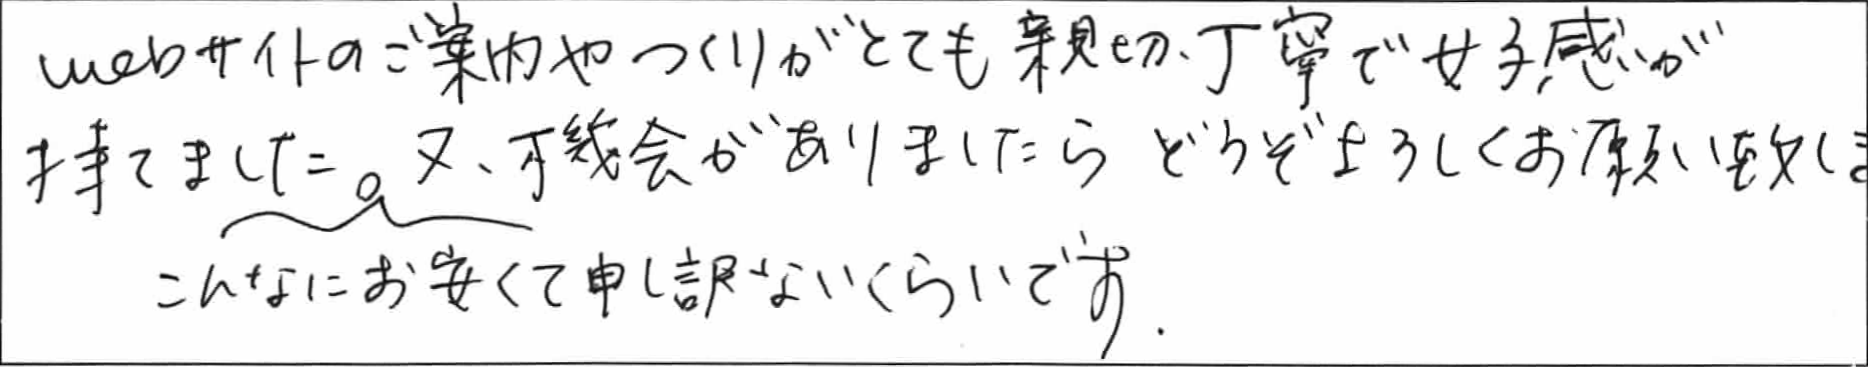 webサイトのご案内やつくりがとても親切、丁寧で好感が
持てました。又、機会がありましたらどうぞよろしくお願い致しま
こんなにお安くて申し訳ないくらいです.